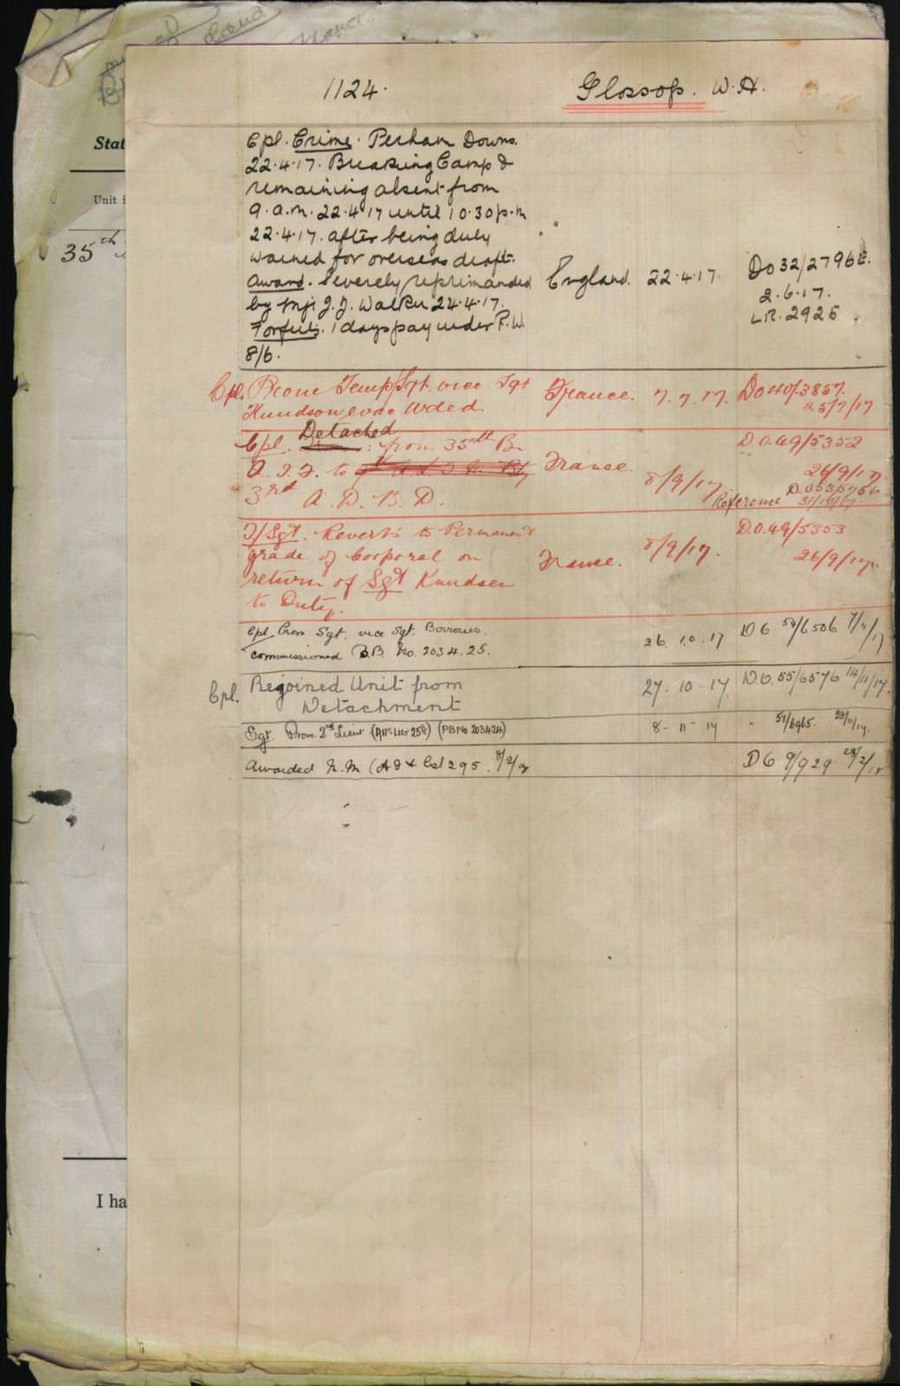 Stat
Unit i
35th
I ha
1124. Glossop. W.H.
Cpl. Crime. Perham Downs.
22.4.17. Breaking Camp &
remaining absent from
9.a.m. 22.4.17 until 10.30p.m
22.4.17. after being duly
warned for overseas draft.
Award. Severely reprimanded England. 22.4.17. Do 32/2796
by Mjr J.J. Walker 24.4.17. 2.6.17.
Forfeits. 1 days pay under R.W. LR.2925
8/6.
Cpl. Prom Temp/Sgt vice Sgt France. 7.7.17. Do 40/3857.
Knudson evac Wded. 25/7/17
Detached
Cpl. from 35th Bn D.O.49/5352
A.I.F. to France. 8/9/17 26/9/17
3rd A.D.B.D. Reference
T/Sgt. Reverts to Permanent D.O.49/5353
grade of Corporal on France. 8/9/17. 26/9/17.
return of Sgt Knudsen
to Duty.
Cpl Prom Sgt. vice Sgt. Borrows. 26.10.17 DO 54/6506 7/11/17
commissioned P.B. No. 2034.25.
Cpl. Rejoined Unit from 27-10-17 D.O. 55/6576 14/11/17.
Detachment
Sgt. Prom. 2nd Lieut 8-11-17 " 57/6965
Awarded M.M DO 9/929